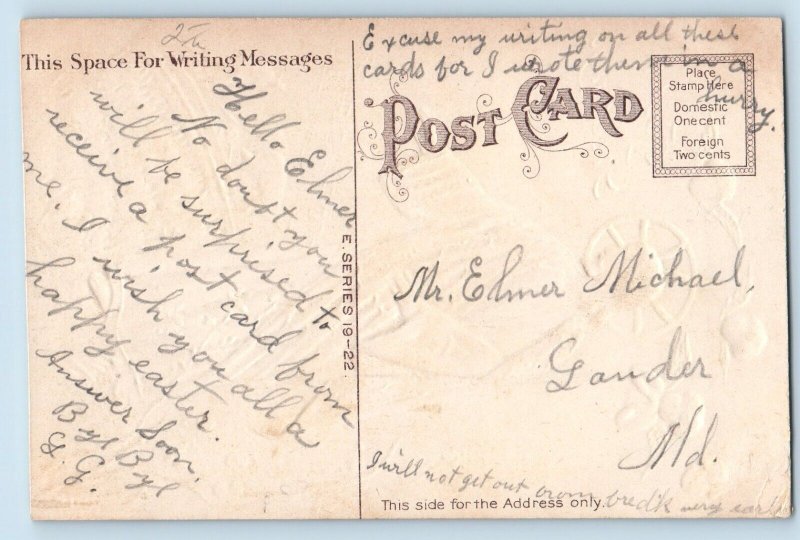 2
This Space For Writing Messages
Hello Elmer
No doubt you
will be surprised to
receive a post card from
me. I wish you all a
happy easter.
Answer Soon.
Bye Bye
G. G.
E. SERIES 19-22.
Excuse my writing on all these
cards for I wrote them in a
hurry.
POST CARD
Place
Stamp Here
Domestic
One cent
Foreign
Two cents
Mr. Elmer Michael,
Lander
Md.
I will not get out very early
This side for the Address only.